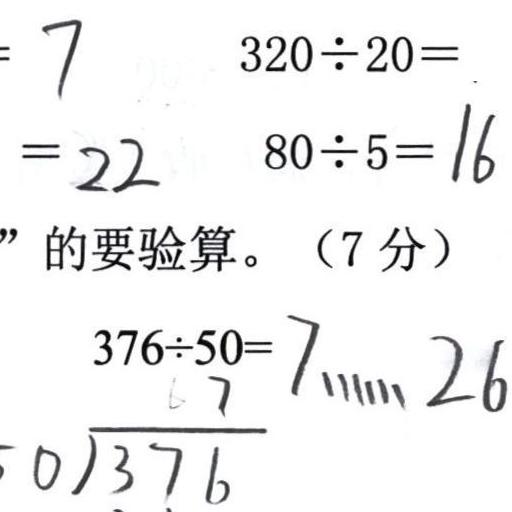 = 7 320÷20=
=22 80÷5=16
”的要验算。（7分）
376÷50=7……26
7
50)376